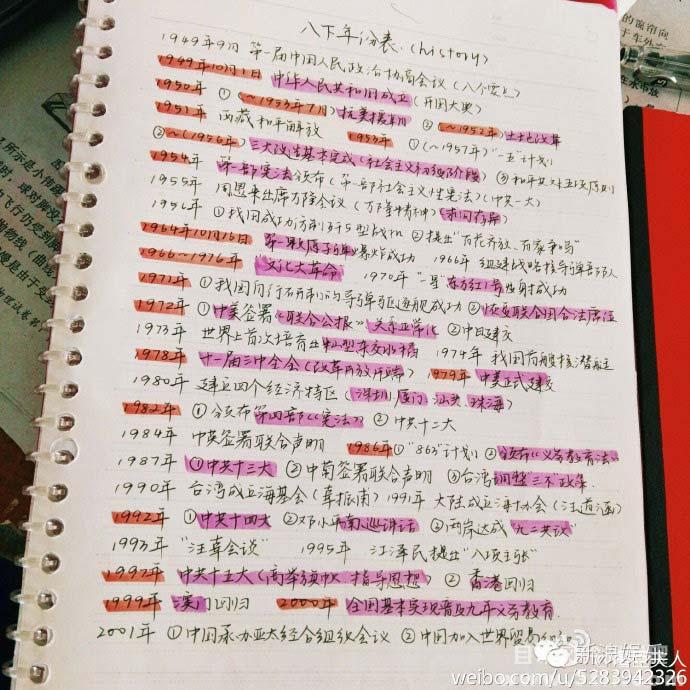 八下年份表.(history)
1949年9月 第一届中国人民政治协商会议(八个字)
1949年10月1日 中华人民共和国成立(开国大典)
1950年 ①(~1953年7月)抗美援朝 ②(~1952年)土地改革
1951年 西藏和平解放 1953年 ①(~1957年)"一五"计划
②~(1956年)三大改造基本完成(社会主义初级阶段) ③和平共处五项原则
1954年 第一部宪法颁布(第一部社会主义性宪法)(中央一大)
1955年 周恩来出席万隆会议(万隆精神)(求同存异)
1956年 ①我国成功仿制 型战机 ②提出"百花齐放、百家争鸣"
1964年10月16日 第一颗原子弹爆炸成功 1966年 组建战略指导弹部队
1966~1976年 "文化大革命" 1970年 "一星"东方红1号发射成功
1971年 ①我国自行研制的导弹驱逐舰成功 ②恢复联合国合法席位
1972年 ①中美签署《联合公报》关系正常化 ②中日建交
1973年 世界上首次培育出籼型杂交水稻 1974年 我国首艘核潜艇
1978年 十一届三中全会(改革开放开端) 1979年 中美正式建交
1980年 建立四个经济特区(深圳、厦门、汕头、珠海)
1982年 ①颁布第四部《宪法》 ②中共十二大
1984年 中英签署联合声明 1986年 ①"863"计划 ②颁布《义务教育法》
1987年 ①中共十三大 ②中葡签署联合声明 ③台湾调整"三不"政策
1990年 台湾成立海基会(辜振甫) 1991年 大陆成立海协会(汪道涵)
1992年 ①中共十四大 ②邓小平南巡讲话 ③两岸达成"九二共识"
1993年 "汪辜会谈" 1995年 江泽民提出"八项主张"
1997年 中共十五大(高举旗帜、指导思想) ②香港回归
1999年 澳门回归 2000年 全国基本实现普及九年义务教育.
2001年 ①中国承办亚太经合组织会议 ②中国加入世界贸易组织
weibo.com/u/5283942326